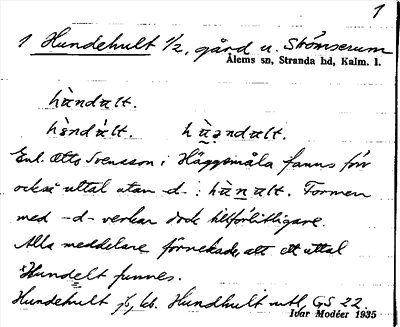 1
1 Hundehult 1/2, gård u. Strömserum
Ålems sn, Stranda hd, Kalm. l.
hàndalt.
hèndàlt. hàəndalt.
Enl. Otto Svensson i Häggemåla fanns förr
också uttal utan -d- : hànalt. Formen
med -d- verkar dock tillförlitligare.
Alla meddelare förnekade, att ett uttal
Hundelt funnes.
Hundehult jb, kb. Hundhult utl, GS 22.
Ivar Modéer 1935